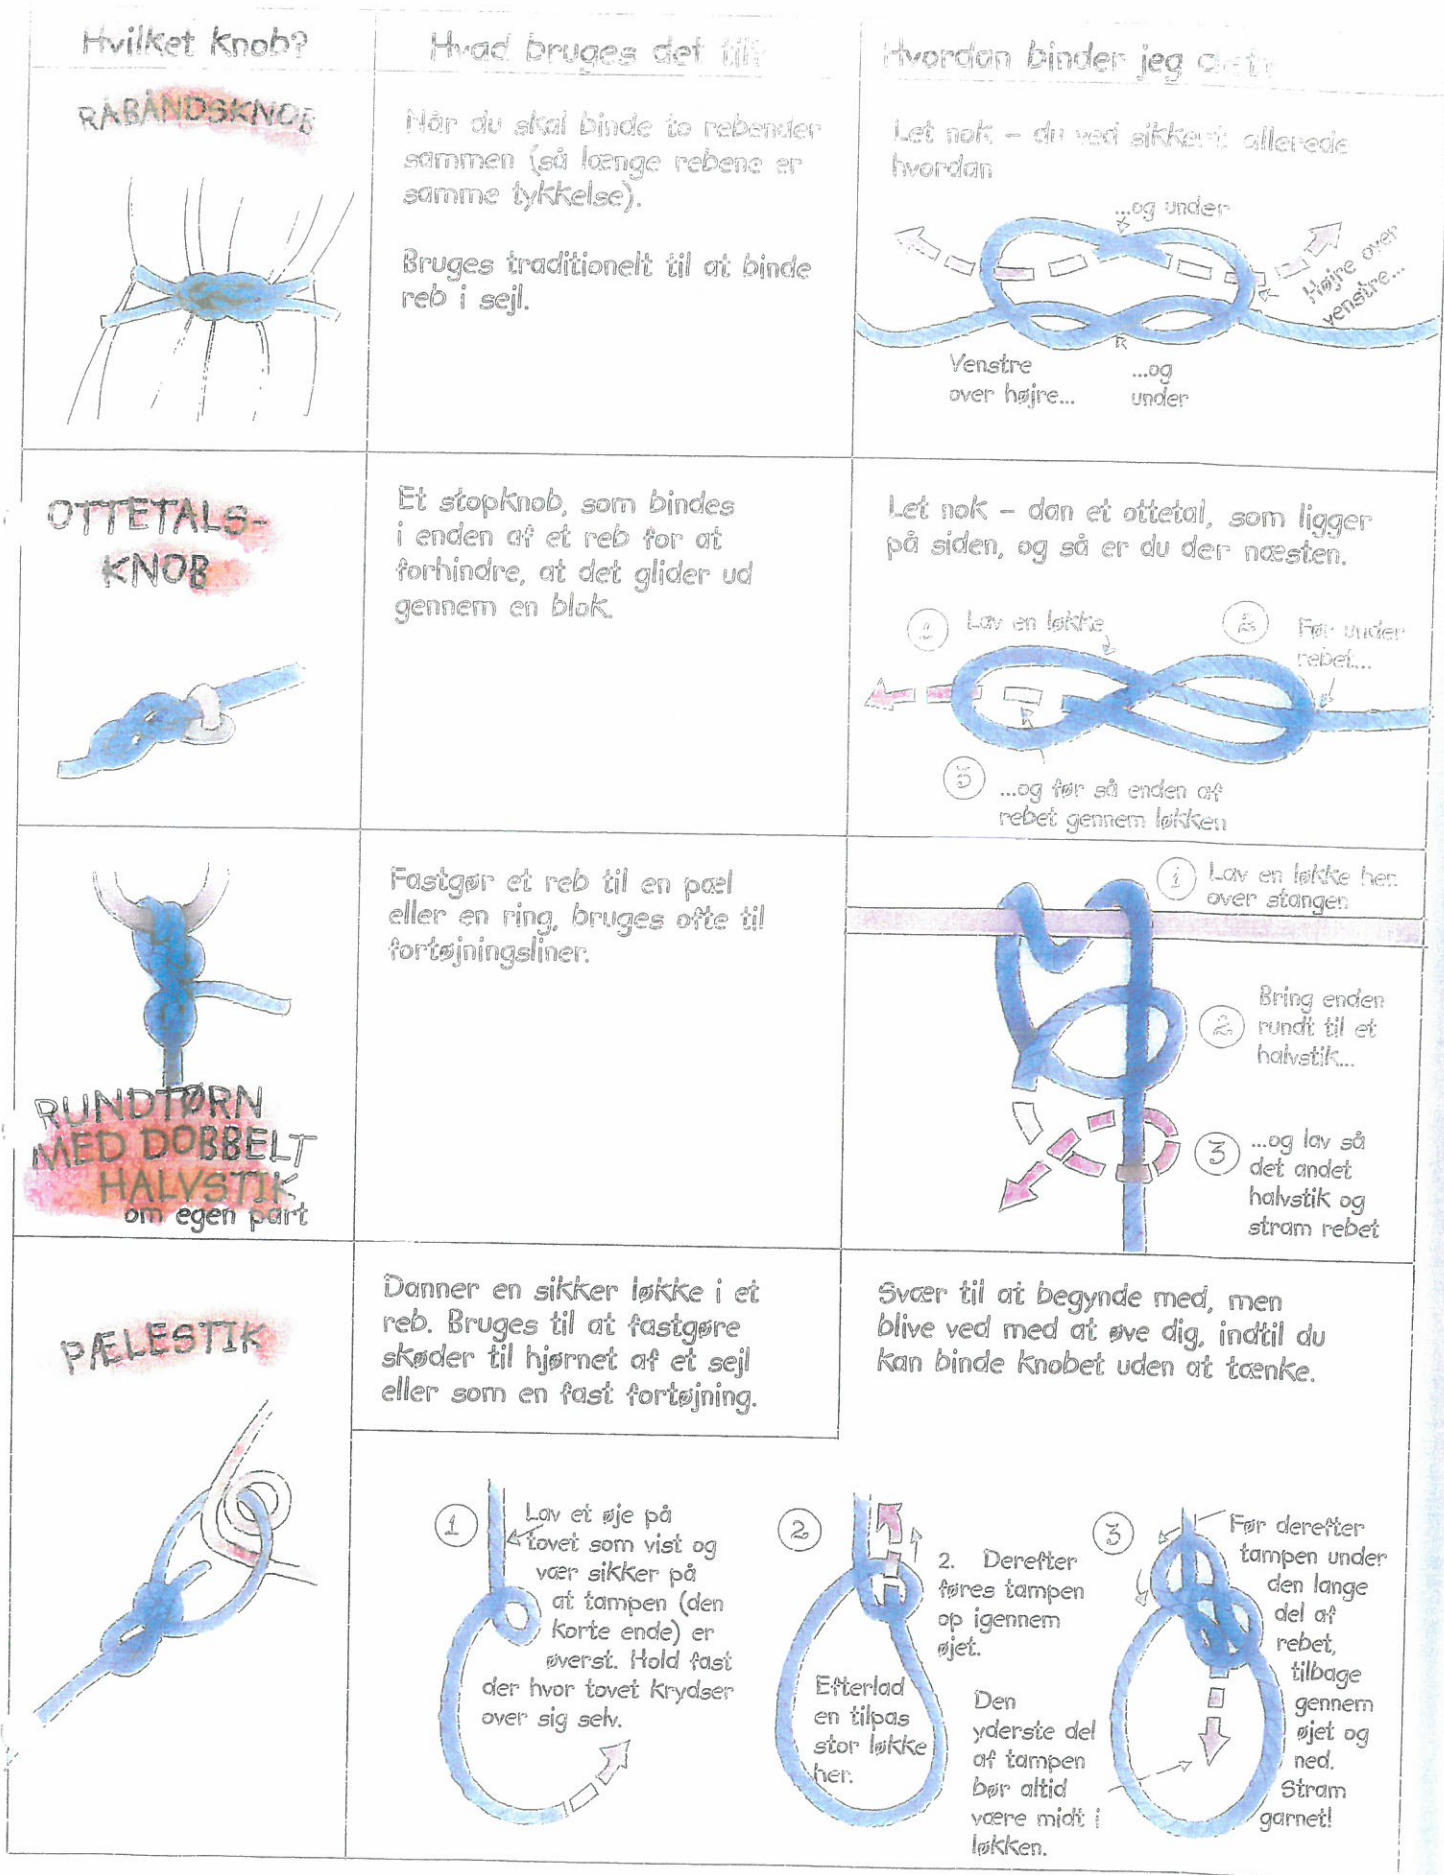 Hvilket knob?
Hvad bruges det til?
Hvordan binder jeg det?
RÅBÅNDSKNOB
Når du skal binde to rebender
sammen (så længe rebene er
samme tykkelse).
Bruges traditionelt til at binde
reb i sejl.
Let nok – du ved sikkert allerede
hvordan
...og under
Højre over
venstre...
Venstre
over højre...
...og
under
OTTETALS-
KNOB
Et stopknob, som bindes
i enden af et reb for at
forhindre, at det glider ud
gennem en blok.
Let nok – dan et ottetal, som ligger
på siden, og så er du der næsten.
Lav en løkke
2
Før under
rebet...
3
...og før så enden af
rebet gennem løkken
RUNDTØRN
MED DOBBELT
HALVSTIK
om egen part
Fastgør et reb til en pæl
eller en ring, bruges ofte til
fortøjningsliner.
1
Lav en løkke her
over stangen
2
Bring enden
rundt til et
halvstik...
3
...og lav så
det andet
halvstik og
stram rebet
PÆLESTIK
Danner en sikker løkke i et
reb. Bruges til at fastgøre
skøder til hjørnet af et sejl
eller som en fast fortøjning.
Svær til at begynde med, men
blive ved med at øve dig, indtil du
kan binde knobet uden at tænke.
1
Lav et øje på
tovet som vist og
vær sikker på
at tampen (den
korte ende) er
øverst. Hold fast
der hvor tovet krydser
over sig selv.
2
2. Derefter
føres tampen
op igennem
øjet.
Efterlad
en tilpas
stor løkke
her.
Den
yderste del
af tampen
bør altid
være midt i
løkken.
3
Før derefter
tampen under
den lange
del af
rebet,
tilbage
gennem
øjet og
ned.
Stram
garnet!